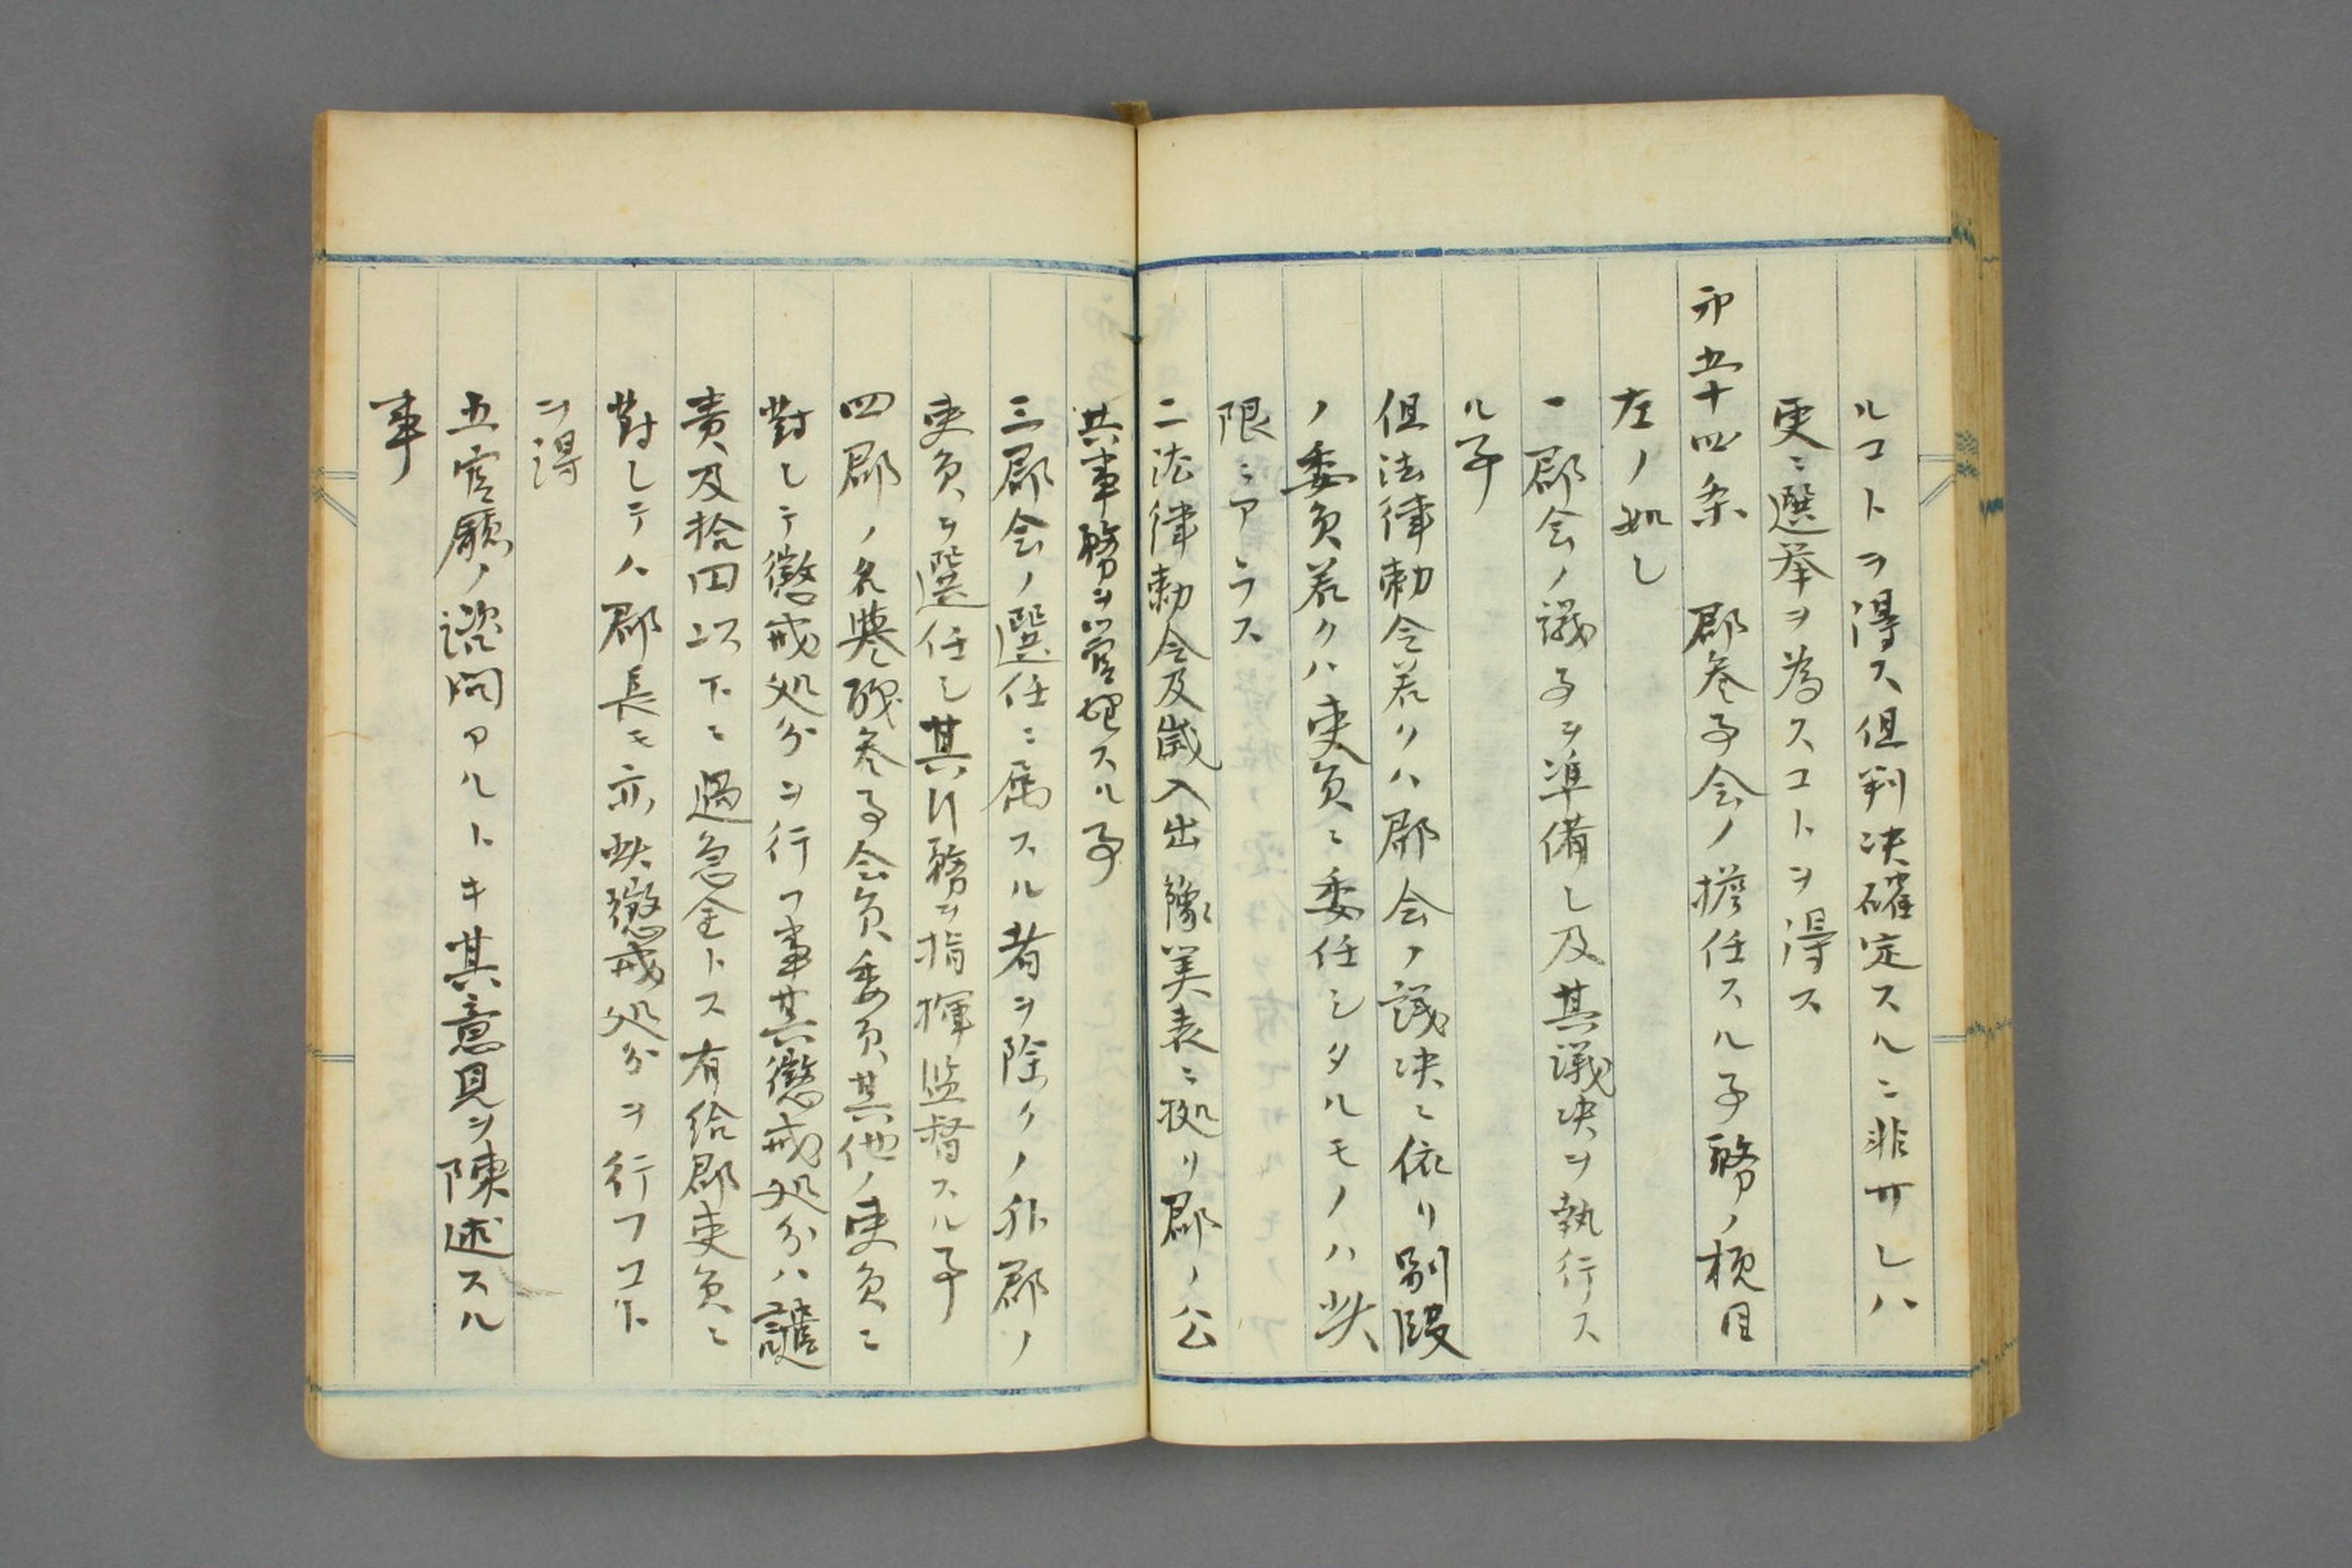 ルコトヲ得ス但判決確定スルニ非サレハ
更ニ選挙ヲ為スコトヲ得ス
第五十四条 郡参事会ノ擔任スル事務ノ梗目
左ノ如シ
一郡会ノ議事ヲ準備シ及其議決ヲ執行ス
ル事
但法律勅令若クハ郡会ノ議決ニ依リ別段
ノ委員若クハ吏員ニ委任シタルモノハ此
限ニアラス
二法律勅令及歳入出豫算表ニ拠リ郡ノ公
共事務ヲ管理スル事
三郡会ノ選任ニ属スル者ヲ除クノ外郡ノ
吏員ヲ選任シ其行務ヲ指揮監督スル事
四郡ノ名誉職参事会員委員其他ノ吏員ニ
對シテ懲戒処分ヲ行フ事其懲戒処分ハ譴
責及拾円以下ニ過怠金トス有給郡吏員ニ
對シテハ郡長モ亦此懲戒処分ヲ行フコト
ヲ得
五官廳ノ諮問アルトキ其意見ヲ陳述スル
事